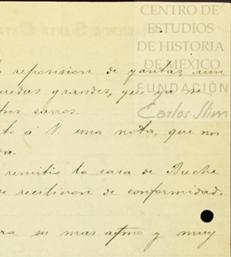 CENTRO DE
ESTUDIOS
DE HISTORIA
DE MEXICO
FUNDACIÓN
Carlos Slim
reposision de llantas aun
ruedas grandes, que ya se
carros.
á V una nota, que nos
remitio la casa de Buche
se recibieron de conformidad.
su mas atmo y muy